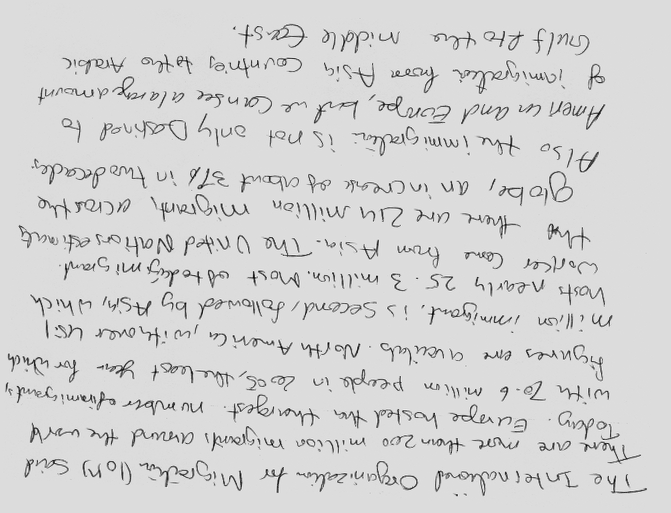 The International Organization for Migration (IOM) said
There are more than 200 million migrants around the world
Today. Europe hosted the largest number of immigrants,
with 70.6 million people in 2005, the least year for which
figures are availab. North America, with over 45.1
million immigrant, is second, followed by Asia, which
hosts nearly 25.3 million. Most of today's migrant
worker come from Asia. The United Nations estimate
that there are 214 million migrant, across the
globe, an increase of about 37% in two decades
Also the immigration is not only Destined to
American and Europe, but we can see a large amount
of immigration from Asia Countries to the Arabic
Gulf & to the middle East.